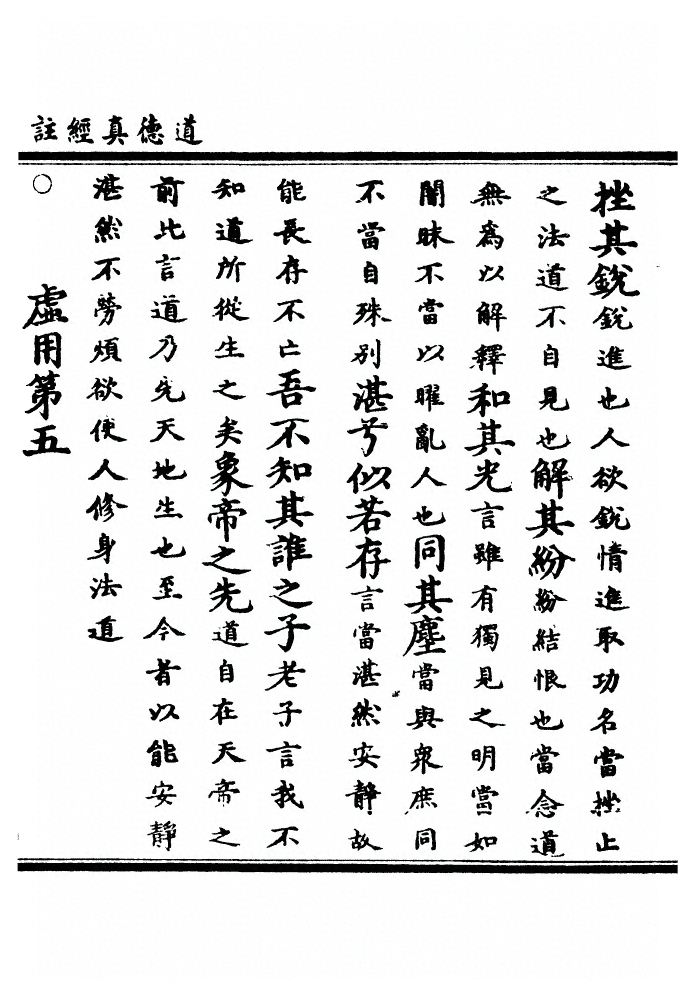 道德真經註
挫其銳銳進也人欲銳情進取功名當挫止
之法道不自見也解其紛紛結恨也當念道
無為以解釋和其光言雖有獨見之明當如
闇昧不當以曜亂人也同其塵當與衆庶同
不當自殊別湛兮似若存言當湛然安靜故
能長存不亡吾不知其誰之子老子言我不
知道所從生之矣象帝之先道自在天帝之
前此言道乃先天地生也至今者以能安靜
湛然不勞煩欲使人修身法道
○
虛用第五